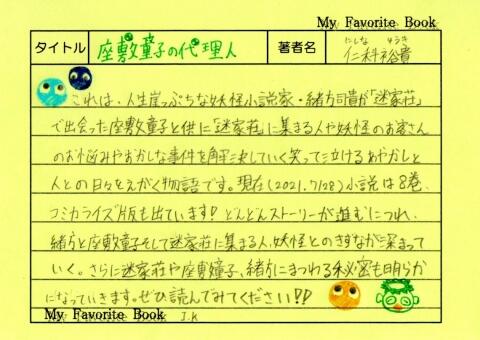 My Favorite Book
タイトル 座敷童子の代理人 著者名 にしな ゆうき 仁科裕貴
これは、人生崖っぷちな妖怪小説家・緒方司貴が「迷家荘」
で出会った座敷童子と供に「迷家荘」に集まる人や妖怪のお客さん
のお悩みやおかしな事件を解決していく笑って泣けるあやかしと
人との日々をえがく物語です。現在(2021.7/28)小説は8巻、
コミカライズ版も出ています! どんどんストーリーが進むにつれ、
緒方と座敷童子そして迷家荘に集まる人、妖怪とのきずなが深まって
いく。さらに迷家荘や座敷童子、緒方にまつわる秘密も明らか
になっていきます。ぜひ読んでみてください!!
My Favorite Book I.K